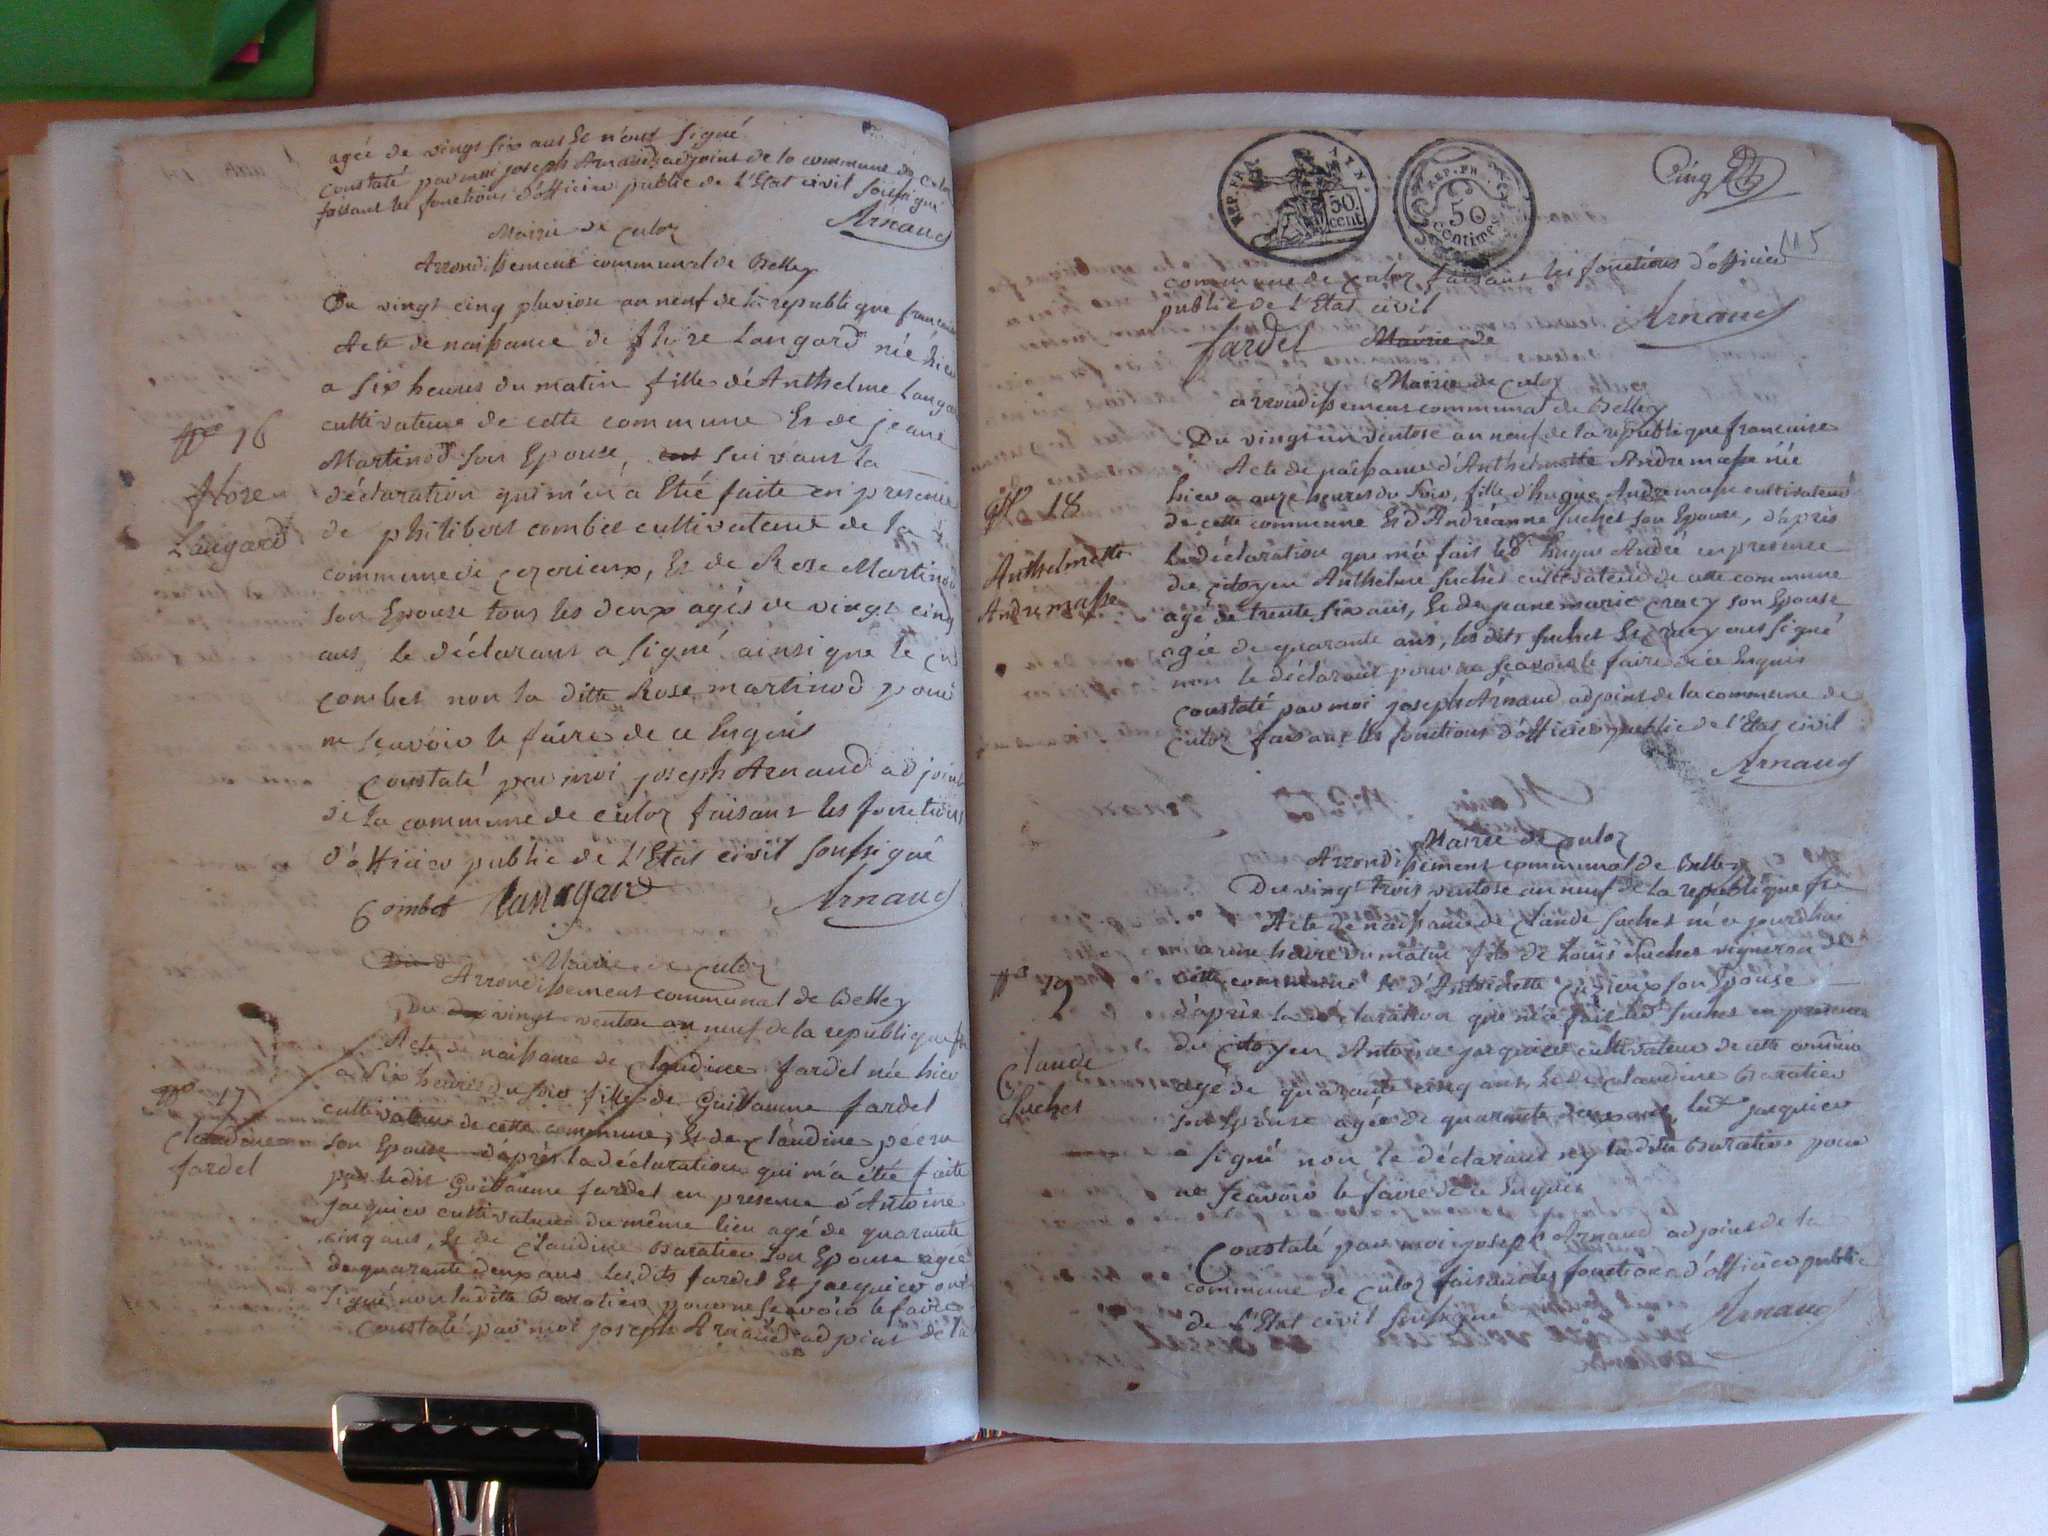 agée de vingt six ans Et n'ont signé
constaté par moi joseph Arnaud adjoint de la commune de culoz
faisant les fonctions d'officier public de L'Etat civil soussigné
Arnaud
Mairie de culoz
Arrondissement communal de Belley
Du vingt cinq pluviose an neuf de la republique francaise
Acte de naissance de flore Langard née hier
a six heures du matin fille de Anthelme Langard
cultivateur de cette commune Et de jeane
Martinod son Epouse, suivant la
déclaration qui m'en a Etié faite en presence
de philibert combet cultivateur de la
commune de ceyzerieux, Et de Rose Martinod
son Epouse tous les deux agés de vingt cinq
ans, le déclarant a signé ainsi que le
combet non la ditte Rose martinod pour
ne scavoir le faire de ce Enquis
Constaté par moi joseph Arnaud adjoint
de la commune de culoz faisant les fonctions
d'officier public de L'Etat civil soussigné
Combet Langard Arnaud
No 16
flore
Langard
Mairie de culoz
Arrondissement communal de Belley
Du vingt ventose an neuf de la republique
Acte de naissance de Claudine fardel née hier
a six heures du soir fille de Guillaume fardel
cultivateur de cette commune, Et de claudine
son Epouse d'après la déclaration qui m'a étée faite
par le dit Guillaume fardel en presence d'Antoine
jacquier cultivateur du même lieu agé de quarante
cinq ans, Et de Claudine Baratier son Epouse agée
de quarante deux ans les dits fardel Et jacquier ont
signé non laditte Baratier pour ne scavoir le faire
Constaté par moi joseph Arnaud adjoint de la
No 17
claudine
fardel
REP. FRA.
50
cent
REP. FR.
50
centimes
Cinq
115
commune de culoz faisant les fonctions d'officier
public de L'Etat civil
fardel Mairie de Arnaud
Mairie de culoz
arrondissement communal de Belley
Du vingt un ventose an neuf de la republique francaise
Acte de naissance d'Anthelmette Andremasse née
hier a onze heures du soir, fille d'hugue Andremasse cultivateur
de cette commune Et d'Andréanne suchet son Epouse, d'après
la déclaration que m'a fait led hugue André en presence
du citoyen Anthelme suchet cultivateur de cette commune
agé de trente six ans, Et de jeane marie cracy son Epouse
agée de quarante ans, les dits suchet Et cracy ont signé
non le déclarant pour ne scavoir le faire de ce Enquis
Constaté par moi joseph Arnaud adjoint de la commune de
culoz faisant les fonctions d'officier public de l'Etat civil
Arnaud
No 18
Anthelmette
Andremasse
Mairie de Culoz
Arrondissement communal de Belley
Du vingt trois ventose an neuf de la republique fre
Acte de naissance de claude suchet né ce jourdhui
a une heure du matin fils de Louis suchet vigneron de
cette commune Et d'Antoinette son Epouse
d'après la déclaration que m'a fait led suchet en presence
du citoyen Antoine jacquier cultivateur de cette commune
agé de quarante cinq ans, Et de claudine Baratier
son Epouse agée de quarante deux ans, led jacquier
a signé non le déclarant ny la dite Baratier pour
ne scavoir le faire de ce Enquis
Constaté par moi joseph Arnaud adjoint de la
commune de culoz faisant les fonctions d'officier public
de L'Etat civil soussigné
Arnaud
No 19
Claude
Suchet